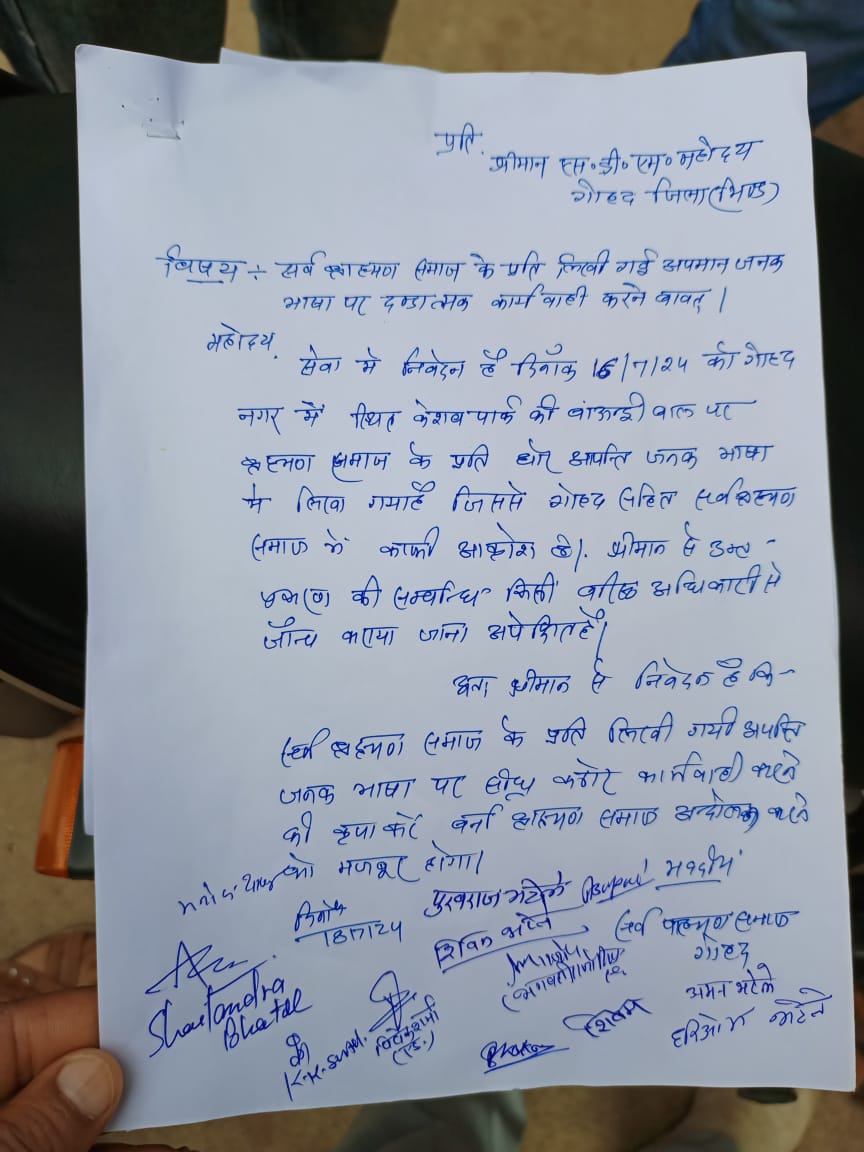 प्रति,
श्रीमान एस.डी.एम. महोदय
गोहद जिला (भिण्ड)
विषय :- सर्व ब्राहमण समाज के प्रति लिखी गई अपमान जनक
भाषा पर दण्डात्मक कार्यवाही करने बावत् |
महोदय,
सेवा मे निवेदन है दिनाँक 16/7/24 को गोहद
नगर में स्थित केशव पार्क की बाऊन्ड्री वाल पर
ब्राहमण समाज के प्रति घोर आपत्ति जनक भाषा
मे लिखा गया है जिससे गोहद सहित सर्व ब्राहमण
समाज में काफी आक्रोश है। श्रीमान से उक्त -
प्रकरण की सम्बन्धित किसी वरिष्ठ अधिकारी से
जाँच कराया जाना अपेक्षित है।
अतः श्रीमान से निवेदन है कि -
सर्व ब्राहमण समाज के प्रति लिखी गयी आपत्ति
जनक भाषा पर शीघ्र कठोर कार्यवाही करने
की कृपा करें वर्ना ब्राहमण समाज अन्दोलन करने
को मजबूर होगा।
दिनाँक
18/7/24
पुखराज भटेले
भवदीय
सर्व ब्राहमण समाज
गोहद
Shailandra
Bhatel
K.K.
शिवम
अमन भटेले
हरिओम भटेले